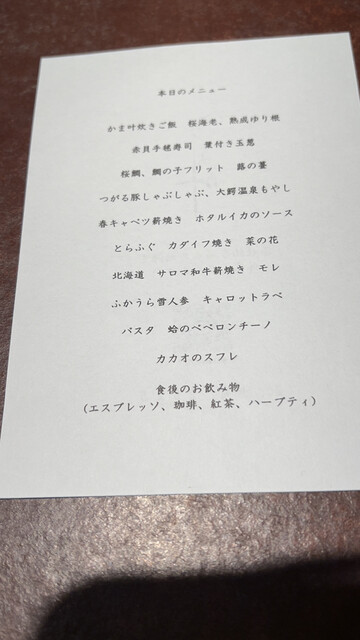 本日のメニュー
かま叶炊きご飯　桜海老、熟成ゆり根
赤貝手毬寿司　葉付き玉葱
桜鯛、鯛の子フリット　蕗の薹
つがる豚しゃぶしゃぶ、大鰐温泉もやし
春キャベツ薪焼き　ホタルイカのソース
とらふぐ　カダイフ焼き　菜の花
北海道　サロマ和牛薪焼き　モレ
ふかうら雪人参　キャロットラペ
パスタ　蛤のペペロンチーノ
カカオのスフレ
食後のお飲み物
(エスプレッソ、珈琲、紅茶、ハーブティ)